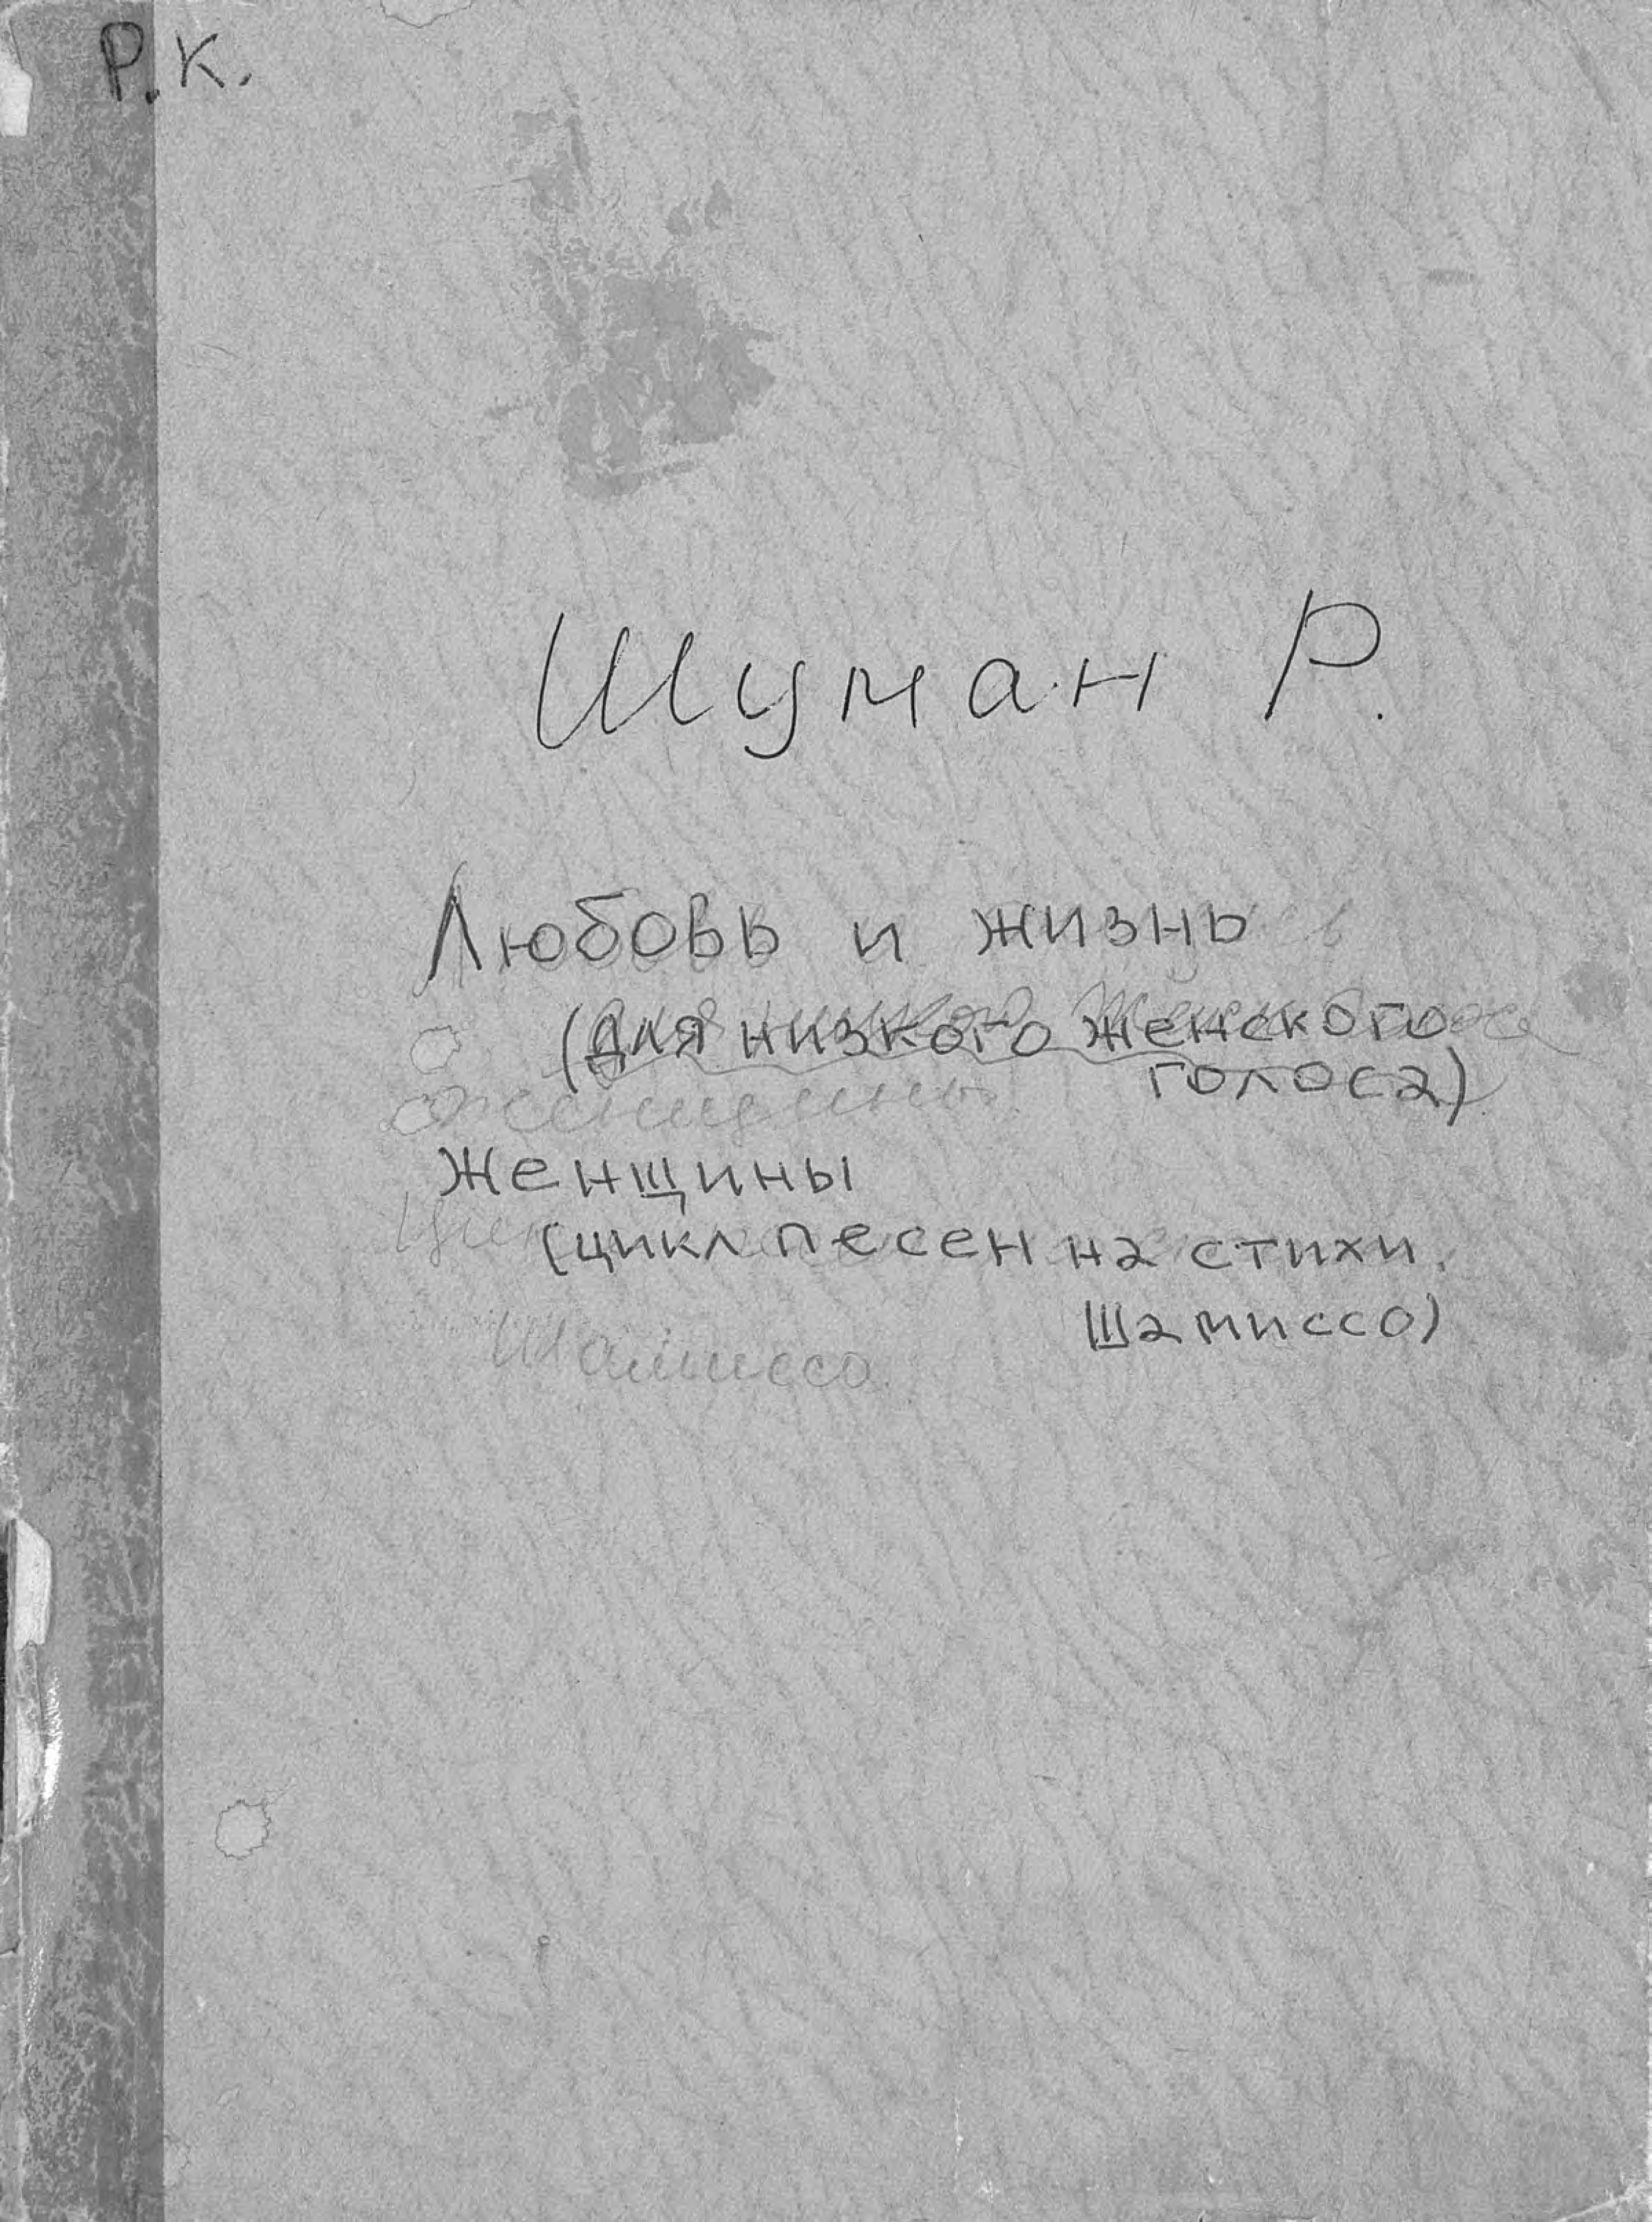 Р.К.
Шуман Р.
Любовь и жизнь
(для низкого женского
голоса)
женщины
Женщины
(цикл песен на стихи
Шамиссо)
Шамиссо